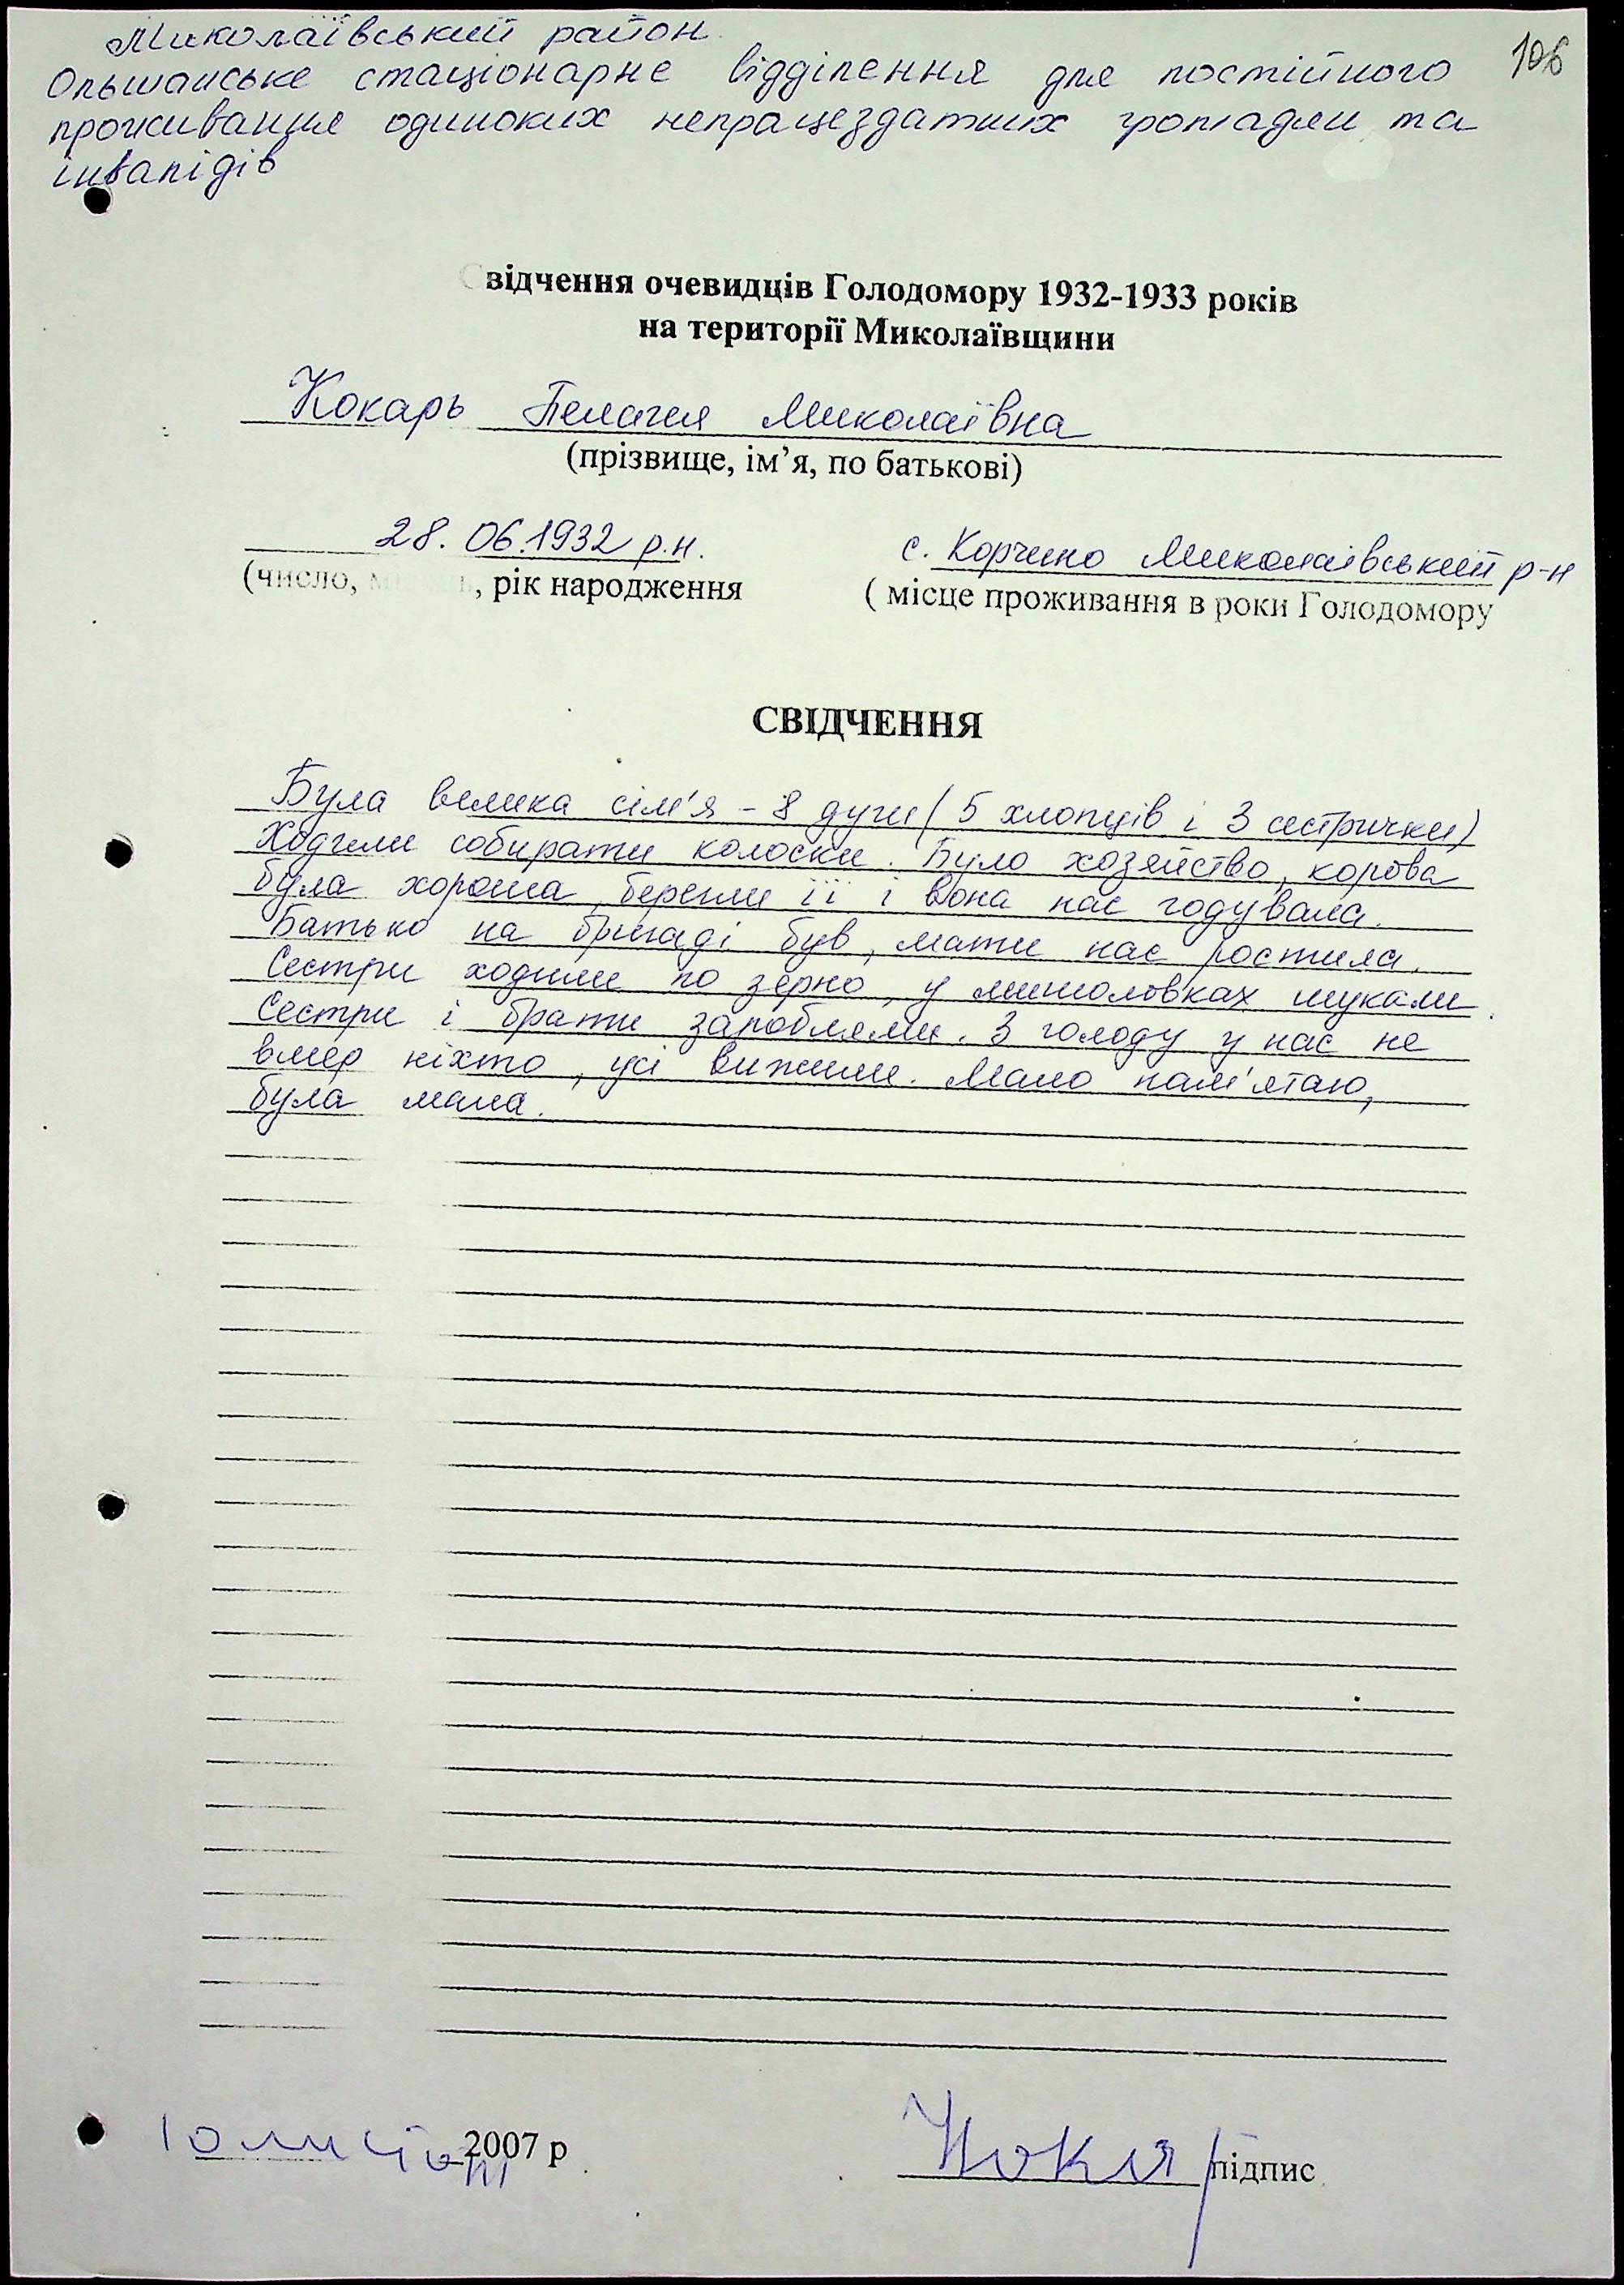 Миколаївський район
106
Ольшанське стаціонарне відділення для постійного
проживання одиноких непрацездатних громадян та
інвалідів
Свідчення очевидців Голодомору 1932-1933 років
на території Миколаївщини
Кокарь Пелагея Миколаївна
(прізвище, ім’я, по батькові)
28. 06.1932 р.н. с. Корчино Миколаївський р-н
(число, місяць, рік народження ( місце проживання в роки Голодомору
СВІДЧЕННЯ
Була велика сім'я - 8 душ ( 5 хлопців і 3 сестрички)
Ходили собирати колоски. Було хозяйство, корова
була хороша, берегли її і вона нас годувала.
Батько на бригаді був, мати нас ростила.
Сестри ходили по зерно, у мишоловках шукали.
Сестри і брати заробляли. З голоду у нас не
вмер ніхто, усі вижили. Мало пам'ятаю,
була мала.
10 2007 р підпис